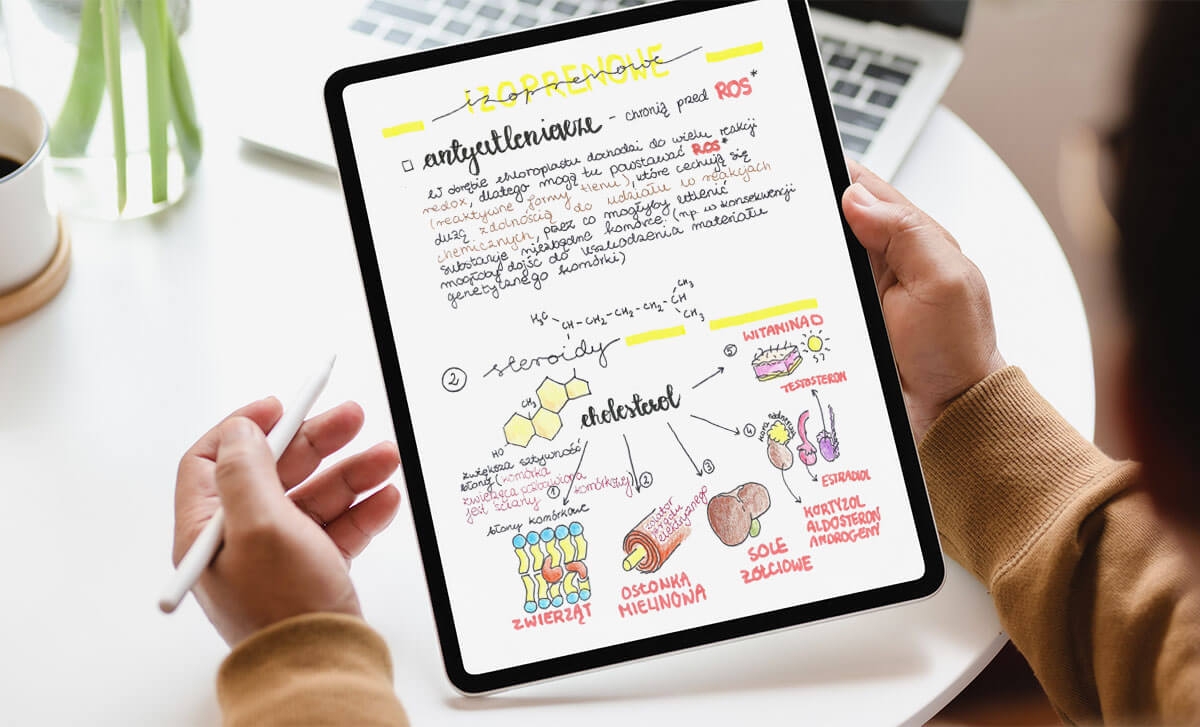 IZOPRENOWE
izoprenowe
antyutleniacze - chronią przed ROS*
W obrębie chloroplastu dochodzi do wielu reakcji
redox, dlatego mogą tu powstawać ROS*
(reaktywne formy tlenu), które cechują się
dużą zdolnością do udziału w reakcjach
chemicznych, przez co mogłyby utlenić
substancje niezbędne komórce (np. w konsekwencji
mogłoby dojść do uszkodzenia materiału
genetycznego komórki)
H3C CH3
CH-CH2-CH2-CH2-CH
CH3
2 steroidy
5 WITAMINA D
TESTOSTERON
CH3
cholesterol
HO
kora nadnerczy
4
zwiększa sztywność
błony (komórka
zwierzęca pozbawiona
jest ściany komórkowej)
1
2
3
ESTRADIOL
błony komórkowe
izolator
impulsu
elektrycznego
KORTYZOL
ALDOSTERON
ANDROGENY
SOLE
ŻÓŁCIOWE
OSŁONKA
MIELINOWA
ZWIERZĄT